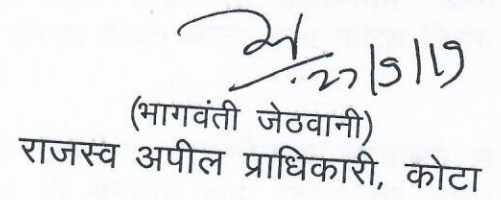 27/9/19
(भागवंती जेठवानी)
राजस्व अपील प्राधिकारी, कोटा